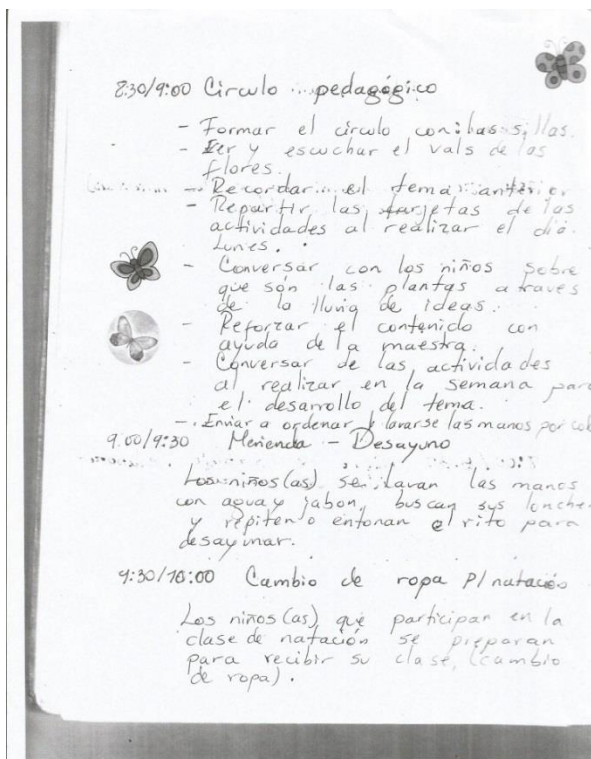 8:30/9:00 Círculo pedagógico
- Formar el círculo con las sillas.
- Ler y escuchar el vals de las
flores.
- Recordar el tema anterior
- Repartir las tarjetas de las
actividades al realizar el dia
Lunes.
- Conversar con los niños sobre
que són las plantas a traves
de la lluvia de ideas.
- Reforzar el contenido con
ayuda de la maestra.
- Conversar de las actividades
al realizar en la semana para
el desarrollo del tema.
- Enviar a ordenar y lavarse las manos por
9:00/9:30 Merienda - Desayuno
Los niños(as) se lavan las manos
con agua y jabon, buscan sus
y repiten o entonan el rito para
desayunar.
9:30/10:00 Cambio de ropa P/natación
Los niños(as) que participan en la
clase de natación se preparan
para recibir su clase, (cambio
de ropa).